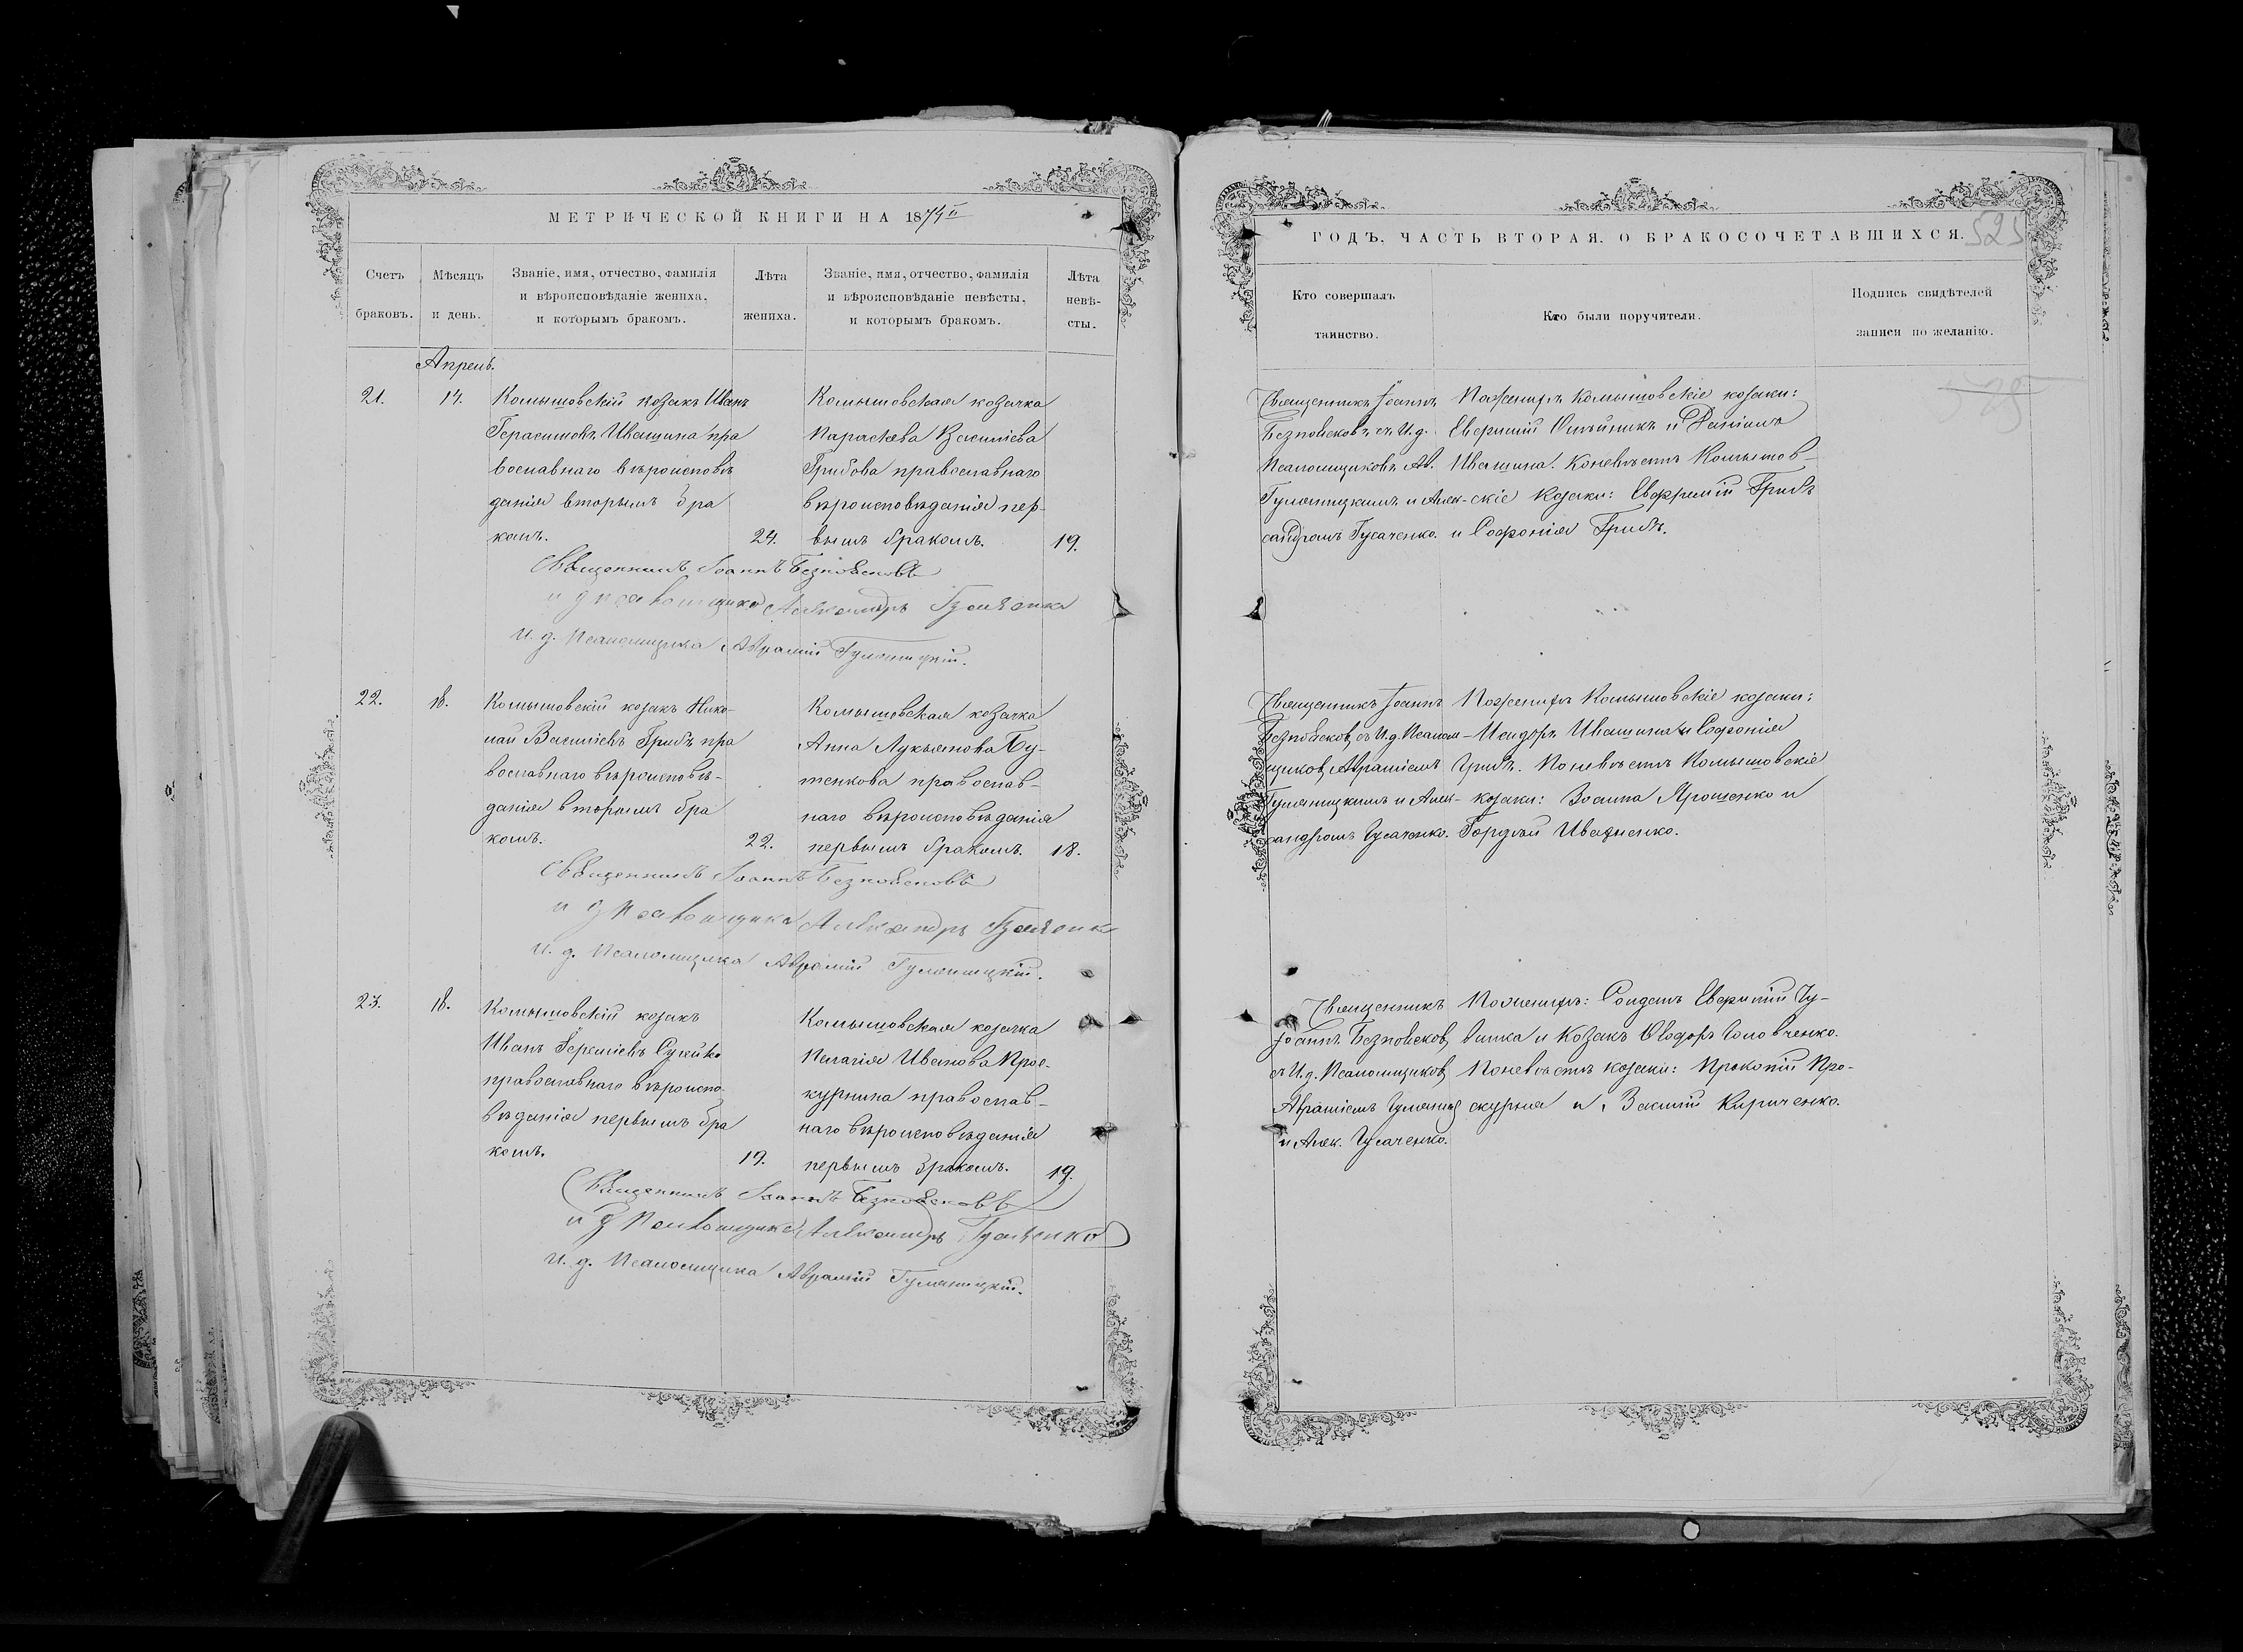 МЕТРИЧЕСКОЙ КНИГИ НА 1874й
Счетъ браковъ.
Мѣсяцъ и день.
Званіе, имя, отчество, фамилія
и вѣроисповѣданіе жениха,
и которымъ бракомъ.
Лѣта жениха.
Званіе, имя, отчество, фамилія
и вѣроисповѣданіе невѣсты,
и которымъ бракомъ.
Лѣта невѣ-
сты.
Апрель.
21.
14.
Комышовскій козакъ Иванъ
Герасимовъ Ивашина пра
вославнаго вѣроисповѣ
данія вторымъ бра
комъ.
24.
Комышовская козачка
Параскева Василіева
Грибова православнаго
вѣроисповѣданія пер-
вымъ бракомъ.
19.
Священникъ Іоаннъ Безпоясковъ
и д псаломщика Александръ Гусаченко
И. д. Псаломщика Аврамій
22.
18.
Комышовскій козакъ Нико-
лай Василіевъ Грибъ пра
вославнаго вѣроисповѣ-
данія вторымъ бра
комъ.
22.
Комышовская козачка
Анна Лукьянова Бу-
тенкова православ-
наго вѣроисповѣданія
первымъ бракомъ.
18.
Священникъ Іоаннъ Безпоясковъ
и д псаломщика Александръ
И. д. Псаломщика Аврамій
23.
18.
Комышовскій козакъ
Иванъ
православнаго вѣроиспо-
вѣданія первымъ бра
комъ.
19.
Комышовская козачка
Пелагія Иванова Прос-
курнина православ-
наго вѣроисповѣданія
первымъ бракомъ.
19.
Священникъ Іоаннъ Безпоясковъ
и д Псаломщика Александръ Гусаченко
И. д. Псаломщика Аврамій
ГОДЪ, ЧАСТЬ ВТОРАЯ, О БРАКОСОЧЕТАВШИХСЯ.
525
Кто совершалъ
таинство.
Кто были поручители.
Подпись свидѣтелей
записи по желанію.
Священникъ Іоаннъ
Безпоясковъ съ И. д.
Псаломщиковъ Ав.
и Алек-
сандромъ Гусаченко.
По женихѣ Комышовскіе козаки:
Олейникъ и Даніилъ
Ивашина. По невѣстѣ Комышов-
скіе козаки: Евфремій Грибъ
и Софонія Грибъ.
Священникъ Іоаннъ
Безпоясковъ съ И. д. Псалом-
щиковъ Авраміемъ
и Алек-
сандромъ Гусаченко.
По женихѣ Комышовскіе козаки:
Исидоръ Ивашина и Софонія
Грибъ. По невѣстѣ Комышовскіе
козаки: Зосима Ярошенко и
Гордѣй
Священникъ
Іоаннъ Безпоясковъ
съ И. д. Псаломщиковъ
Авраміемъ
и Алек. Гусаченко.
По женихѣ: Солдатъ
и козакъ Ѳеодоръ Головченко.
По невѣстѣ козаки: Прокопій Про-
скурня и Василій Кириченко.